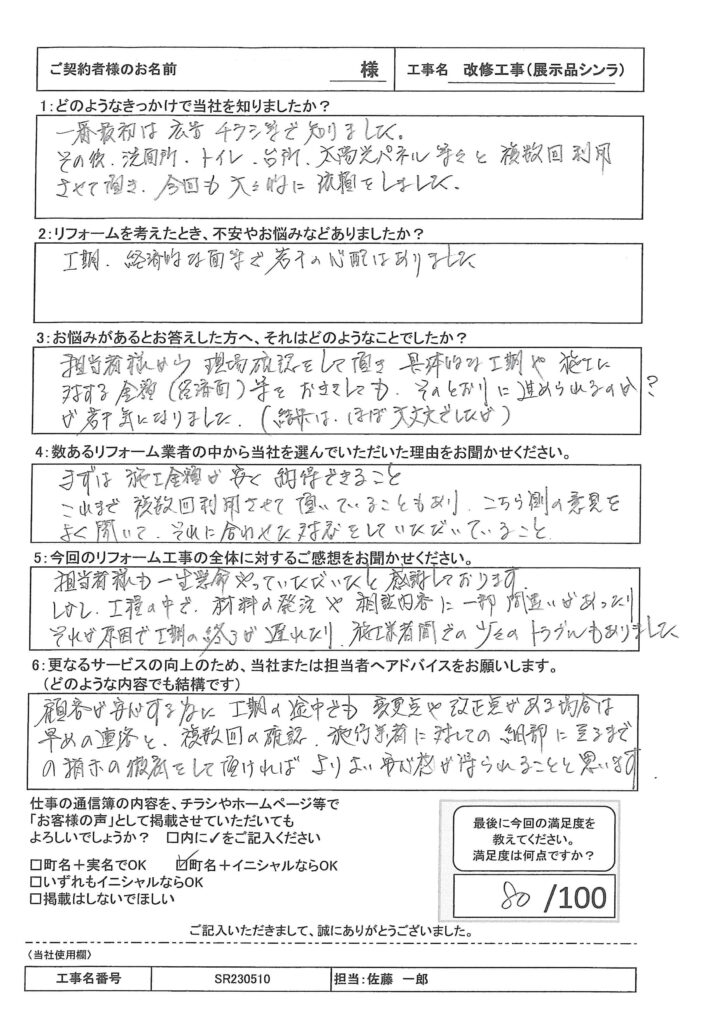 ご契約者様のお名前 様 工事名 改修工事(展示品シンラ)
1:どのようなきっかけで当社を知りましたか?
一番最初は 広告 チラシ等で 知りました。
その後、洗面所、トイレ、台所、太陽光パネル 等々と 複数回 利用
させて頂き、今回も 大々的に 依頼をしました。
2:リフォームを考えたとき、不安やお悩みなどありましたか?
工期、経済的な面等で 若干の心配はありました
3:お悩みがあるとお答えした方へ、それはどのようなことでしたか?
担当者様から 現場確認をして頂き 具体的な工期や 施工に
対する 金額(経済面)等を お聞きしても、そのとおりに 進められるのか?
が 若干気になりました。(結果は、ほぼ 大丈夫でしたが)
4:数あるリフォーム業者の中から当社を選んでいただいた理由をお聞かせください。
まずは 施工金額が 安く 納得できること
これまで 複数回利用させて 頂いていることもあり、こちら側の意見を
よく聞いて、それに合わせた対応をしていただいていること
5:今回のリフォーム工事の全体に対するご感想をお聞かせください。
担当者様も 一生懸命 やっていただいたと 感謝しております
しかし、工程の中で、材料の発注や 相談内容に 一部 間違いがあったり
それが原因で工期の終了が遅れたり、施工業者間での 少々の トラブルもありました
6:更なるサービスの向上のため、当社または担当者へアドバイスをお願いします。
(どのような内容でも結構です)
顧客が安心する為に 工期の途中でも 変更点や改正点がある場合は
早めの連絡と、複数回の確認、施行業者に対しての 細部に至るまで
の指示の徹底をして頂ければ よりよい安心感が得られることと思います。
仕事の通信簿の内容を、チラシやホームページ等で
「お客様の声」として掲載させていただいても
よろしいでしょうか? □内に✓をご記入ください
□町名+実名でOK ☑町名+イニシャルならOK
□いずれもイニシャルならOK
□掲載はしないでほしい
最後に今回の満足度を
教えてください。
満足度は何点ですか?
80 /100
ご記入いただきまして、誠にありがとうございました。
(当社使用欄)
工事名番号 SR230510 担当:佐藤 一郎